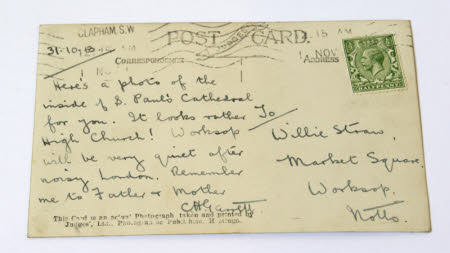 CLAPHAM, S.W
31.10.13
POST CARD.
15 AM
1 NOV
CORRESPONDENCE
ADDRESS
JUDGES'
HALFPENNY
Here's a photo of the
inside of S. Paul's Cathedral
for you. It looks rather
High Church! Worksop
will be very quiet after
noisy London. Remember
me to Father & Mother
CHGarrett
To
Willie Straw,
Market Square,
Worksop,
Notts.
This Card is an actual Photograph taken and printed by
Judges', Ltd., Photographic Publishers, Hastings.